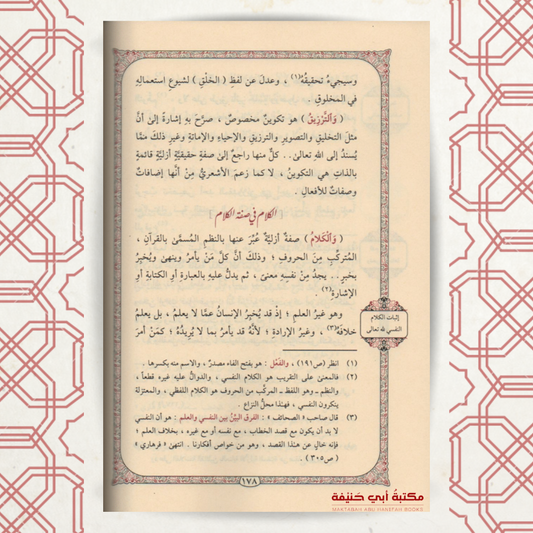 وسيجيءُ تحقيقُهُ(١) ، وعدلَ عن لفظِ ( الخَلْقِ ) لشيوعِ استعمالِهِ
في المخلوقِ .
( وَٱلتَّرْزِيقُ ) هو تكوينٌ مخصوصٌ ، صرَّحَ بهِ إشارةً إلىٰ أنَّ
مثلَ التخليقِ والتصويرِ والترزيقِ والإحياءِ والإماتةِ وغيرِ ذلكَ ممَّا
يُسنَدُ إلى اللهِ تعالىٰ . . كلٌّ منها راجعٌ إلىٰ صفةٍ حقيقيَّةٍ أزليَّةٍ قائمةٍ
بالذاتِ هي التكوينُ ، لا كما زعمَ الأشعريُّ مِنْ أنَّها إضافاتٌ
وصفاتٌ للأفعالِ .
[ الكلام في صفة الكلام ]
( وَٱلْكَلَامُ ) صفةٌ أزليَّةٌ عُبِّرَ عنها بالنظمِ المُسمَّىٰ بالقرآنِ ،
المُتركِّبِ مِنَ الحروفِ ؛ وذلكَ أنَّ كلَّ مَنْ يأمرُ وينهىٰ ويُخبِرُ
بخبرٍ . . يجدُ مِنْ نفسِهِ معنىً ، ثم يدلُّ عليهِ بالعبارةِ أوِ الكتابةِ أوِ
الإشارةِ(٢) .
إثبات الكلام
النفسي لله تعالى
وهو غيرُ العلمِ ؛ إذْ قد يُخبِرُ الإنسانُ عمَّا لا يعلمُ ، بل يعلمُ
خلافَهُ(٣) ، وغيرُ الإرادةِ ؛ لأنَّهُ قد يأمرُ بما لا يُريدُهُ ؛ كمَنْ أمرَ
(١) انظر (ص١٩١) ، والفَعْل : هو بفتح الفاء مصدرٌ ، والاسم منه بكسرها .
(٢) فالمعنى على التقريب هو الكلام النفسي ، والدوالُّ عليه غيره قطعاً ،
والنظم ـ وهو اللفظ ـ المركَّب من الحروف هو الكلام اللفظي ، والمعتزلة
ينكرون النفسي ، فهٰذا محلُّ النزاع .
(٣) قال صاحب « الصحائف » : الفرق البيِّنُ بين النفسي والعلم : هو أن النفسي
لا بد أن يكون مع قصد الخطاب ، مع نفسه أو مع غيره ، بخلاف العلم ؛
فإنه خالٍ عن هٰذا القصد ، وهو من خواص أفكارنا . انتهىٰ « فرهاري »
( ص٣٠٥ ) .
١٧٨
مكتبة أبي حنيفة
MAKTABAH ABU HANEEFAH BOOKS